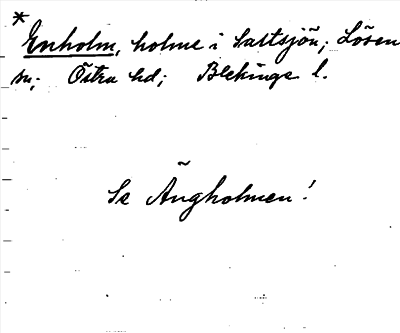 * Enholm, holme i Saltsjön; Lösen
sn; Östra hd; Blekinge l.
Se Ängholmen!